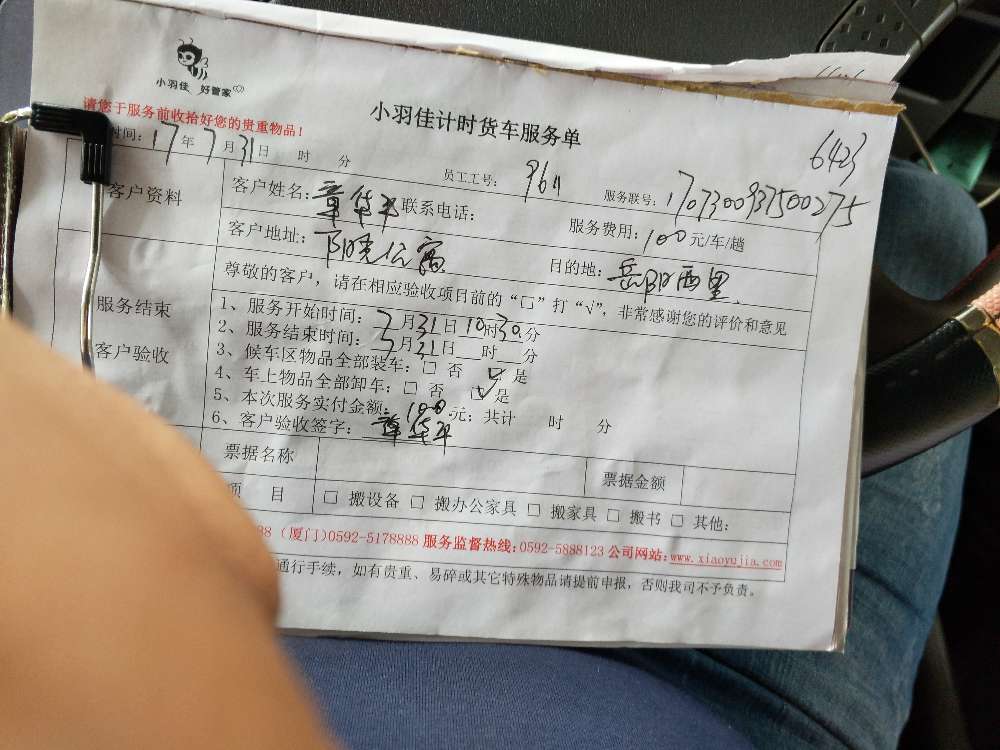 小羽佳 好管家
请您于服务前收拾好您的贵重物品！
小羽佳计时货车服务单
6423
时间：17年7月31日 时 分
员工工号：
服务联号：1707300937500275
客户资料
客户姓名：章华平 联系电话：
服务费用：100元/车/趟
客户地址：阳光公寓
目的地：岳阳西里
尊敬的客户，请在相应验收项目前的“□”打“√”，非常感谢您的评价和意见
服务结束
客户验收
1、服务开始时间：7月31日10时30分
2、服务结束时间：7月31日__时__分
3、候车区物品全部装车：□ 否 ☑ 是
4、车上物品全部卸车：□ 否 ☑ 是
5、本次服务实付金额：100元；共计 时 分
6、客户验收签字：章华平
票据名称
票据金额
项 目
□ 搬设备 □ 搬办公家具 □ 搬家具 □ 搬书 □ 其他：
88（厦门）0592-5178888 服务监督热线：0592-5888123 公司网站：www.xiaoyujia.com
通行手续，如有贵重、易碎或其它特殊物品请提前申报，否则我司不予负责。